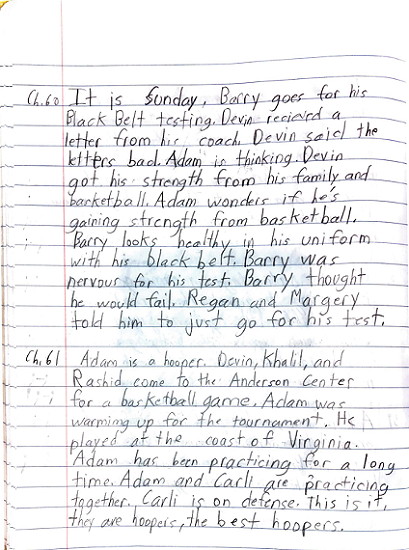 Ch.60 It is Sunday, Barry goes for his
Black Belt testing. Devin recieved a
letter from his coach. Devin said the
letters bad. Adam is thinking. Devin
got his strength from his family and
basketball. Adam wonders if he's
gaining strength from basketball.
Barry looks healthy in his uniform
with his black belt. Barry was
nervous for his test. Barry thought
he would fail. Regan and Margery
told him to just go for his test.
Ch.61 Adam is a hooper. Devin, Khalil, and
Rashid come to the Anderson Center
for a basketball game. Adam was
warming up for the tournament. He
played at the coast of Virginia.
Adam has been practicing for a long
time. Adam and Carli are practicing
together. Carli is on defense. This is it,
they are hoopers, the best hoopers.